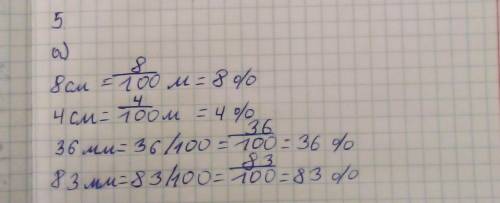 5
а)
8 см = 8/100 м = 8 %
4 см = 4/100 м = 4 %
36 мм = 36/100 = 36/100 = 36 %
83 мм = 83/100 = 83/100 = 83 %